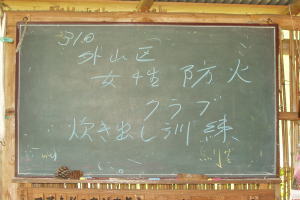 外山区
女性 防火
クラブ
炊き出し訓練